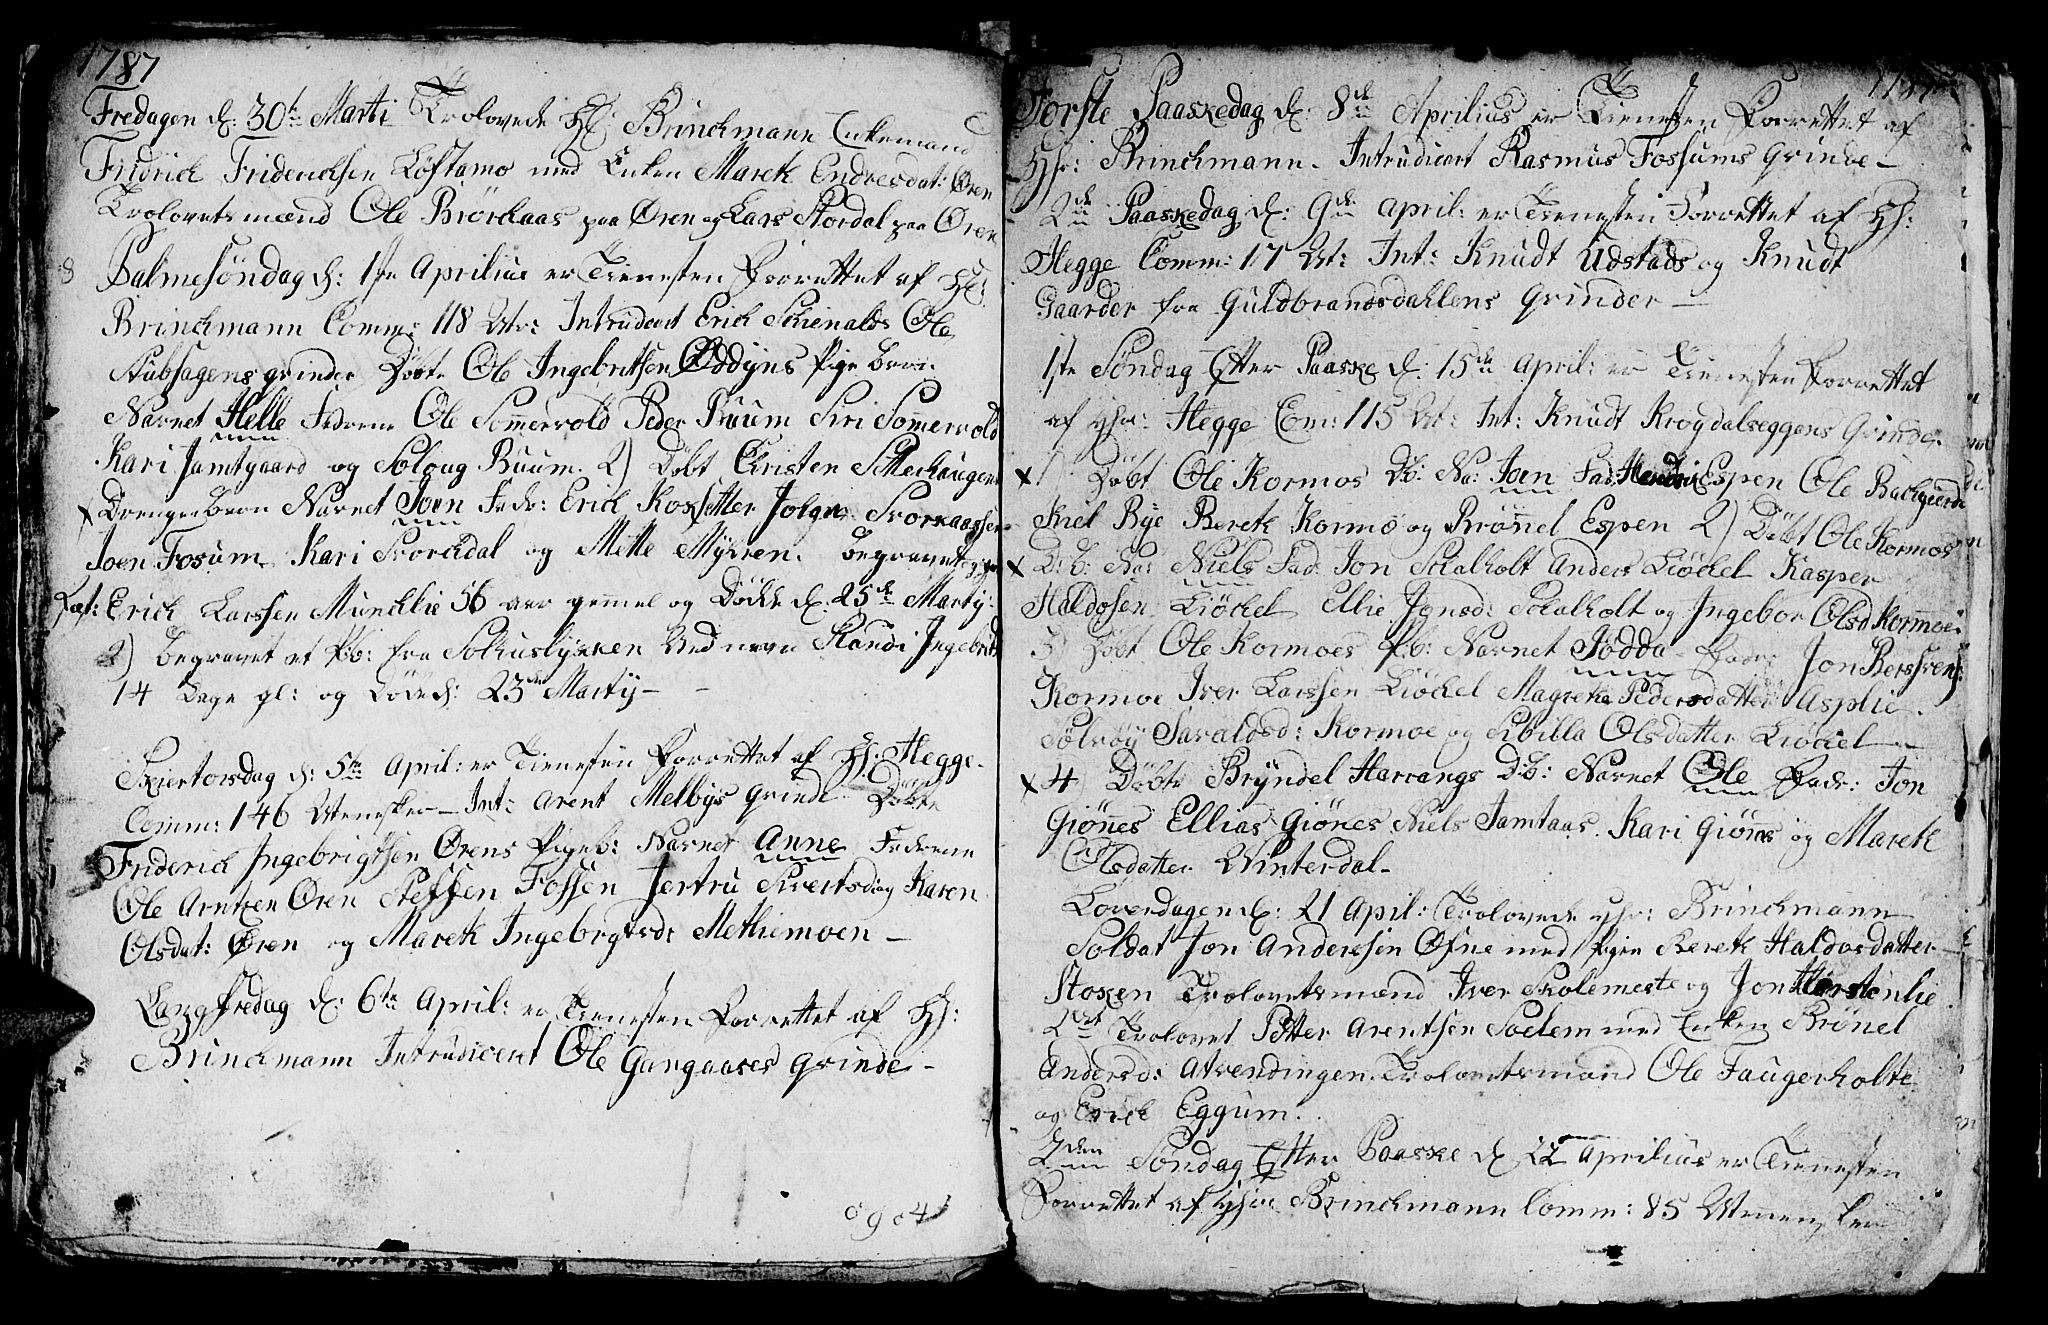 1787
Fredagen d: 30te Marti Trolovede Hr: Brinchmann Enkemand
Fridrich Friderichsen Løstamo med Enken Marek Endresdat: Øren
Trolovetsmænd Ole Brørchaas paa Øren og Lars Stordal paa Øren
Palmesöndag d: 1ste Aprilius er Tienesten Forrettet af Hr:
Brinchmann Comm: 118 Intruducert Erich Schienalds Ole
Stubsagens grinder Döbt Ole Ingebritsen Oddyns Pige barn
Navnet Helle Fadrene Ole Somervold Peder Buum Siri Somervold
Kari Jamtgaard og Soloug Buum. 2) Döbt Christen Sætterhaugens
Drengebarn Navnet Joen Fadr: Erich Koxsetter Jolgr: Svorkaassen
Joen Fosum, Kari Svorchdal og Mette Myrren. begravet
Erich Larssen Munchlie 56 aar gammel og Döde d. 25de Marty:
2) begravet et Pb: fra Solkuslykken Ved navn Randi Ingebrits
14 Dage gl: og Döde d: 23de Marty —
Skiertorsdag d: 5te April: er Tienesten Forrettet af Hr: Hegge.
Comm: 146 Menesker — Int: Arent Melbys grinde Döbte
Friderich Ingebrigtsen Ørens Pigeb: Navnet Anne Fadrene
Ole Arntzen Øren Steffen Fossen Jertru Sivertsdag Karen
Olsdat: Øren og Marek Ingebrgtsd: Methiemoen —
Langfredag d: 6te April: er Tienesten Forrettet af Hr:
Brinchmann Intruducert Ole Gangaases grinde —
1787
Forste Paaskedag d: 8de Aprilius er Tienesten Forrettet af
Hr: Brinchmann — Intruducert Rasmus Fossums grinde —
2den Paaskedag d: 9de April: er Tienesten Forrettet af Hr:
Hegge Comm: 17 Int: Knudt Udstads og Knudt
Gaarder fra Guldbrandsdahlens grinder —
1ste Söndag Efter Paaske d: 15de April: er Tienesten Forrettet
af Hr: Hegge Com: 115 Int: Knudt Krogdalseggens Grinde
x 1) Döbt Ole Kormos Db: Na: Joen Fad: Hendric Espen Ole Bachgierde
Kiel Bye Berek Kormo og Brönel Espen 2) Döbt Ole Kormos
x D:b: Na: Niels Fad: Jon Schalholt Anders Liöchel Kasper
Haldosen Liöchel Ellie Jonsd: Schalholt og Ingebor Olsd Kormoe
3) Döbt Ole Kormoes P:b: Navnet Födda Fadr: Jon Berssvens:
Kormoe Iver Larssen Liöchel Magreke Pedersdatter Asplie.
Sölvöy Saraldsd: Kormoe og Sibilla Olsdatter Liöchel —
x 4) Döbte Bryndel Harrangs D:b: Navnet Ole Fadr: Jon
Giönnes Ellias Giönes Niels Jamtaas. Kari Giönes og Marek
Olsdatter Winterdal —
Löverdagen d: 21 April: Trolovede Hr: Brinchmann
Soldat Jon Andersen Ofne med Pigen Berek Haldosdatter
Stoken Trolovetsmænd Iver Skolemeste og Jon Horstenlie
2det Trolovet Petter Arentsen Soelem med Enken Brönel
Andersd: Atrendingen. Trolovetsmænd Ole Faugerholte
og Erich Eggum.
2den Söndag Efter Paaske d: 22 Aprilius er Tienesten
Forrettet af Hr: Brinchmann Comm: 85